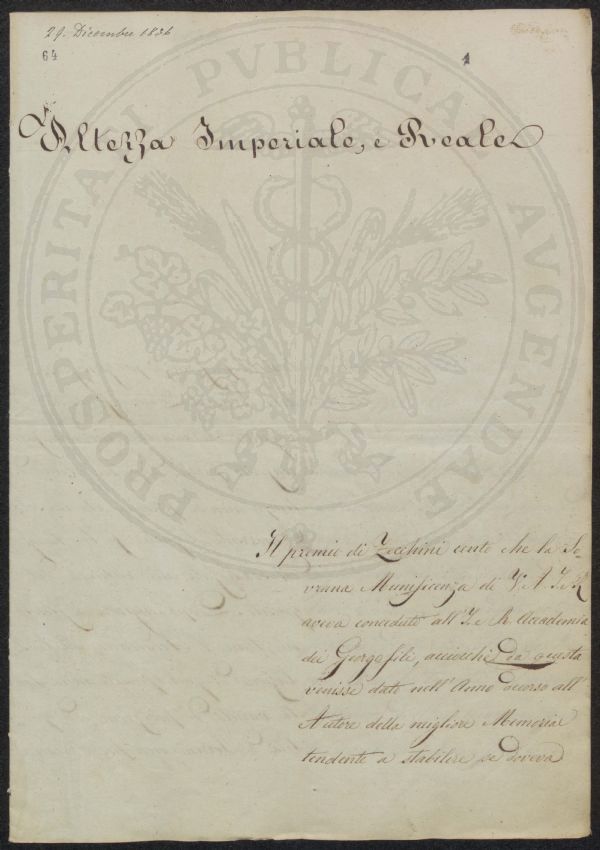 29. Dicembre 1836
64
1
Altezza Imperiale, e Reale
PROSPERITATI PVBLICAE AVGENDAE
Il premio di Zecchini cento che la So-
vrana Munificenza di V. A. I. e R.
aveva conceduto all' I. e R. Accademia
dei Georgofili, acciocchè da questa
venisse dato nell' Anno decorso all'
Autore della migliore Memoria
tendente a stabilire se doveva